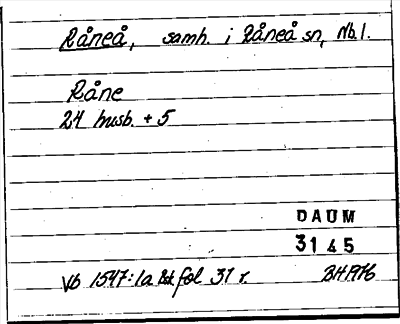 Råneå, samh. i Råneå sn, Nb.l.
Råne
24 husb. + 5
DAUM
3145
Vb 1547:1a Bst fol 31 r. BHP76